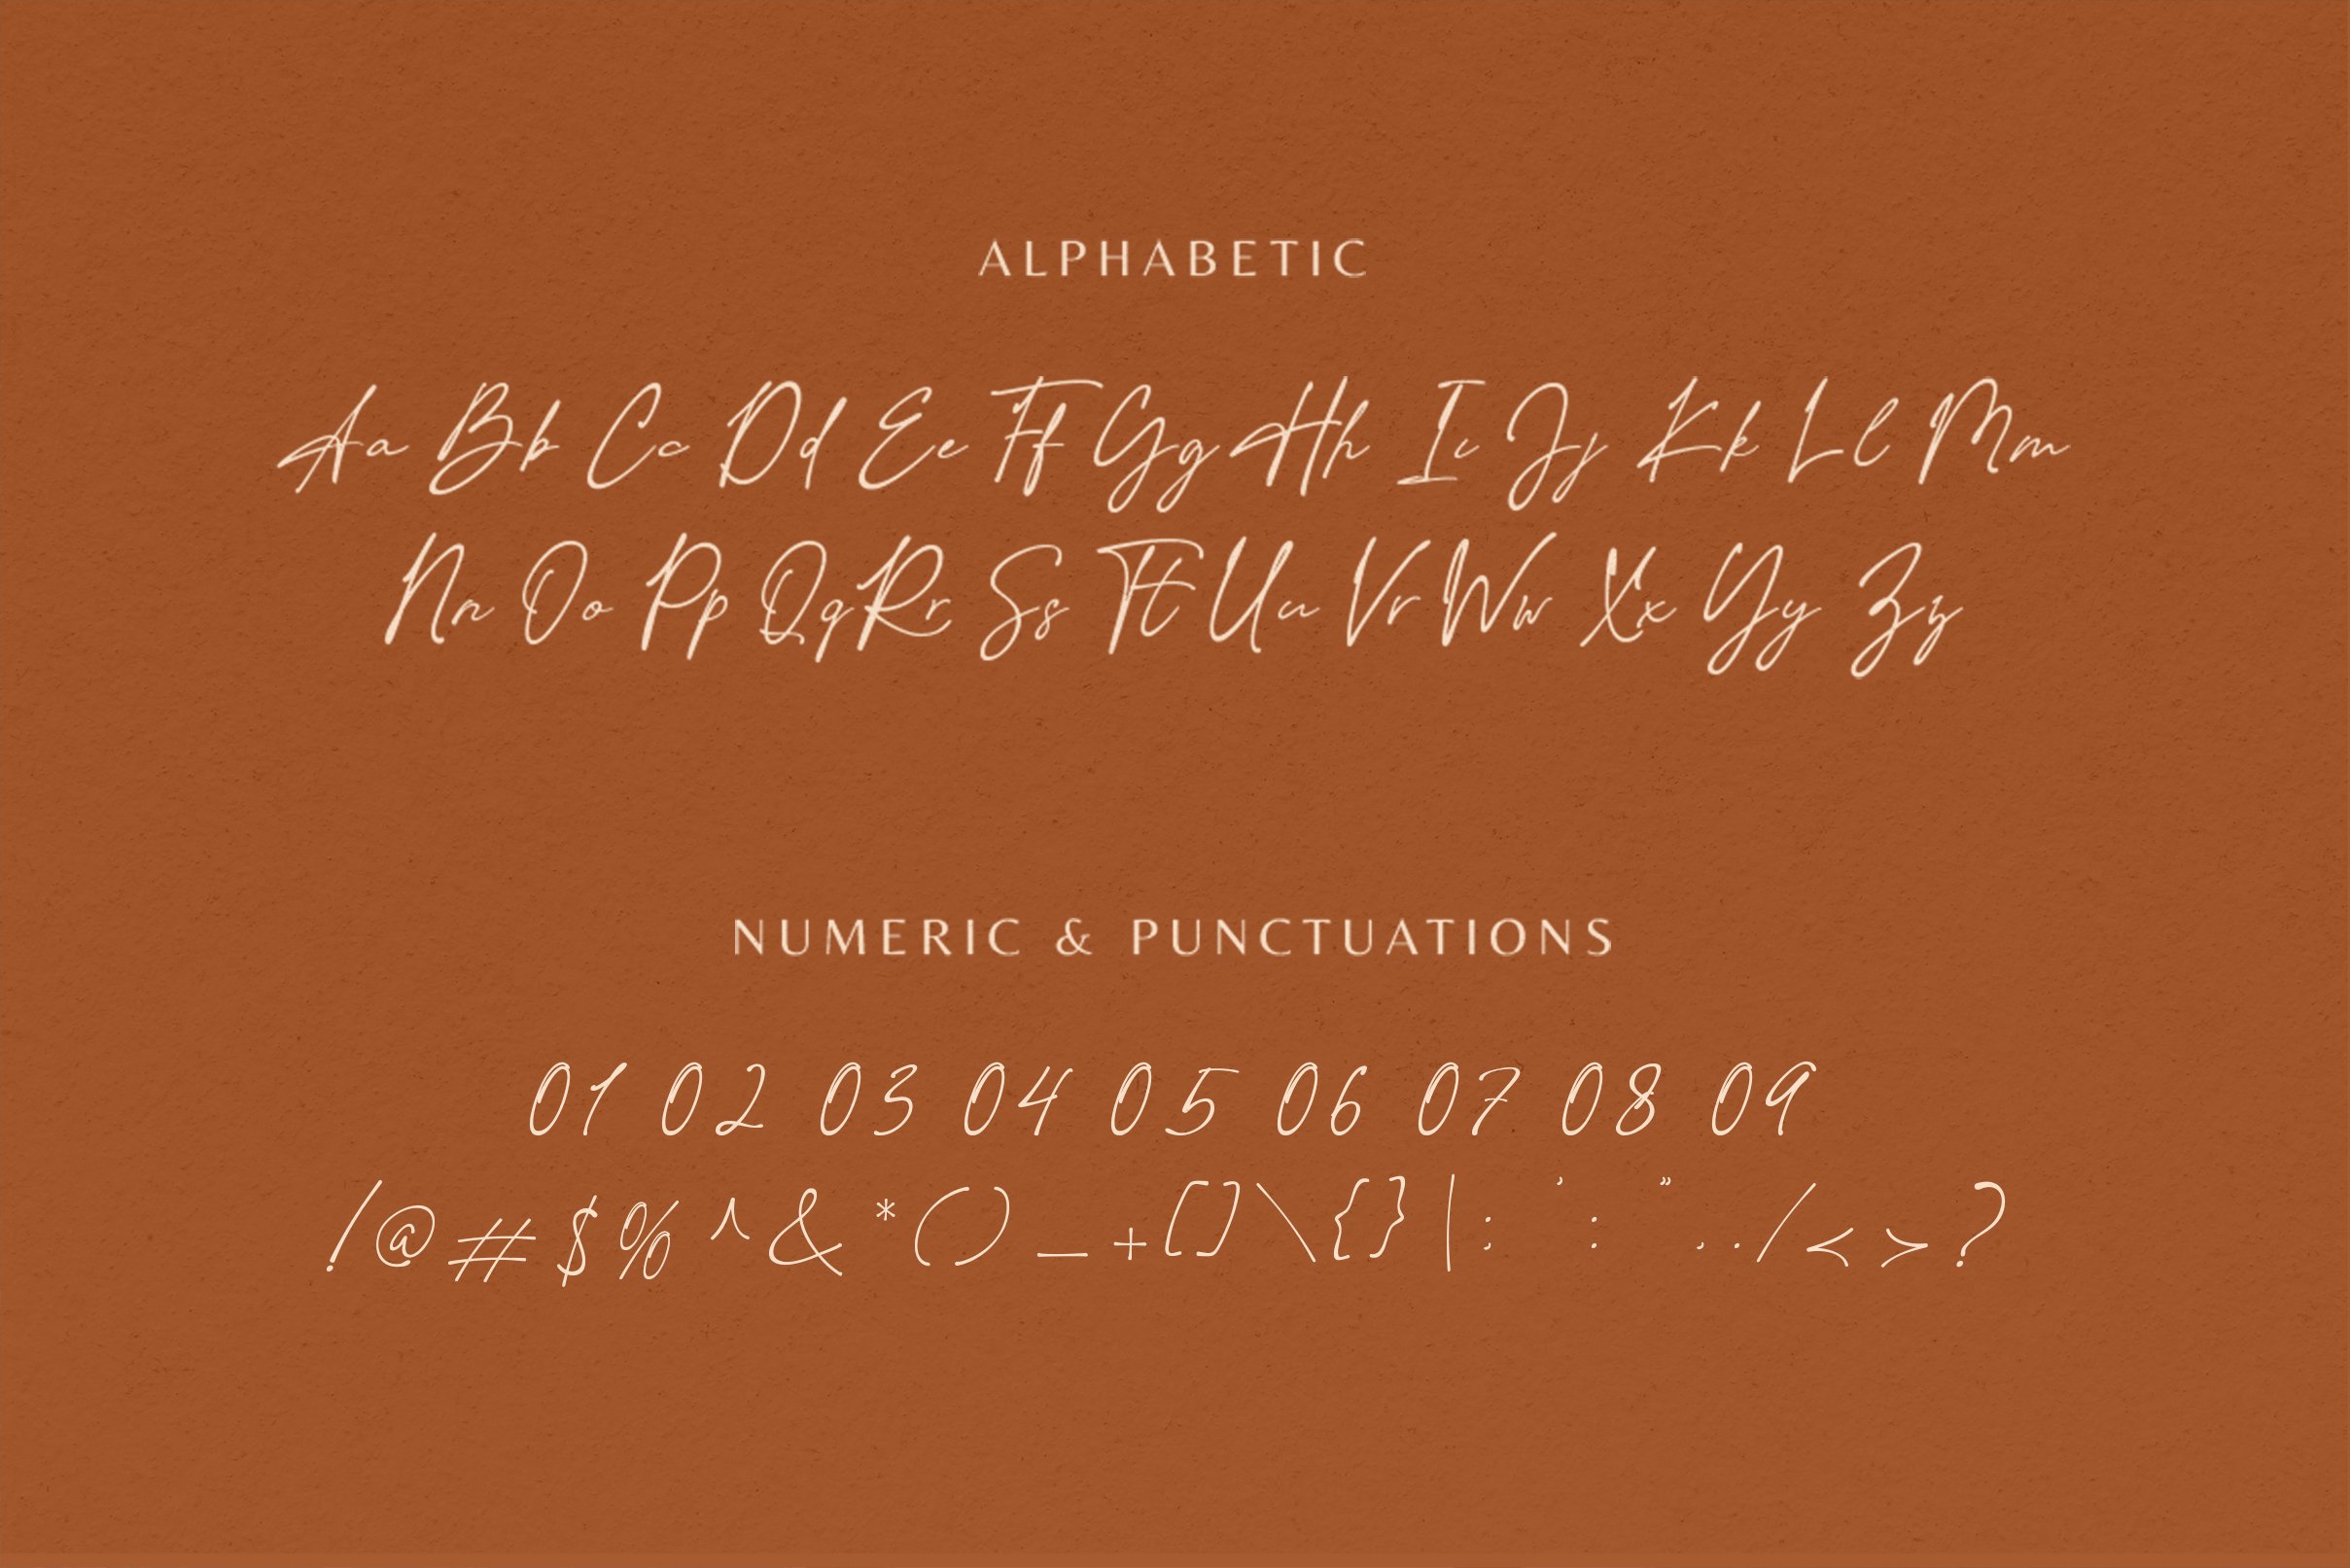 ALPHABETIC
Aa Bb Cc Dd Ee Ff Gg Hh Ii Jj Kk Ll Mm
Nn Oo Pp Qq Rr Ss Tt Uu Vv Ww Xx Yy Zz
NUMERIC & PUNCTUATIONS
01 02 03 04 05 06 07 08 09
! @ # $ % ^ & * ( ) _ + [ ] \ { } | ; ' : " , . / < > ?